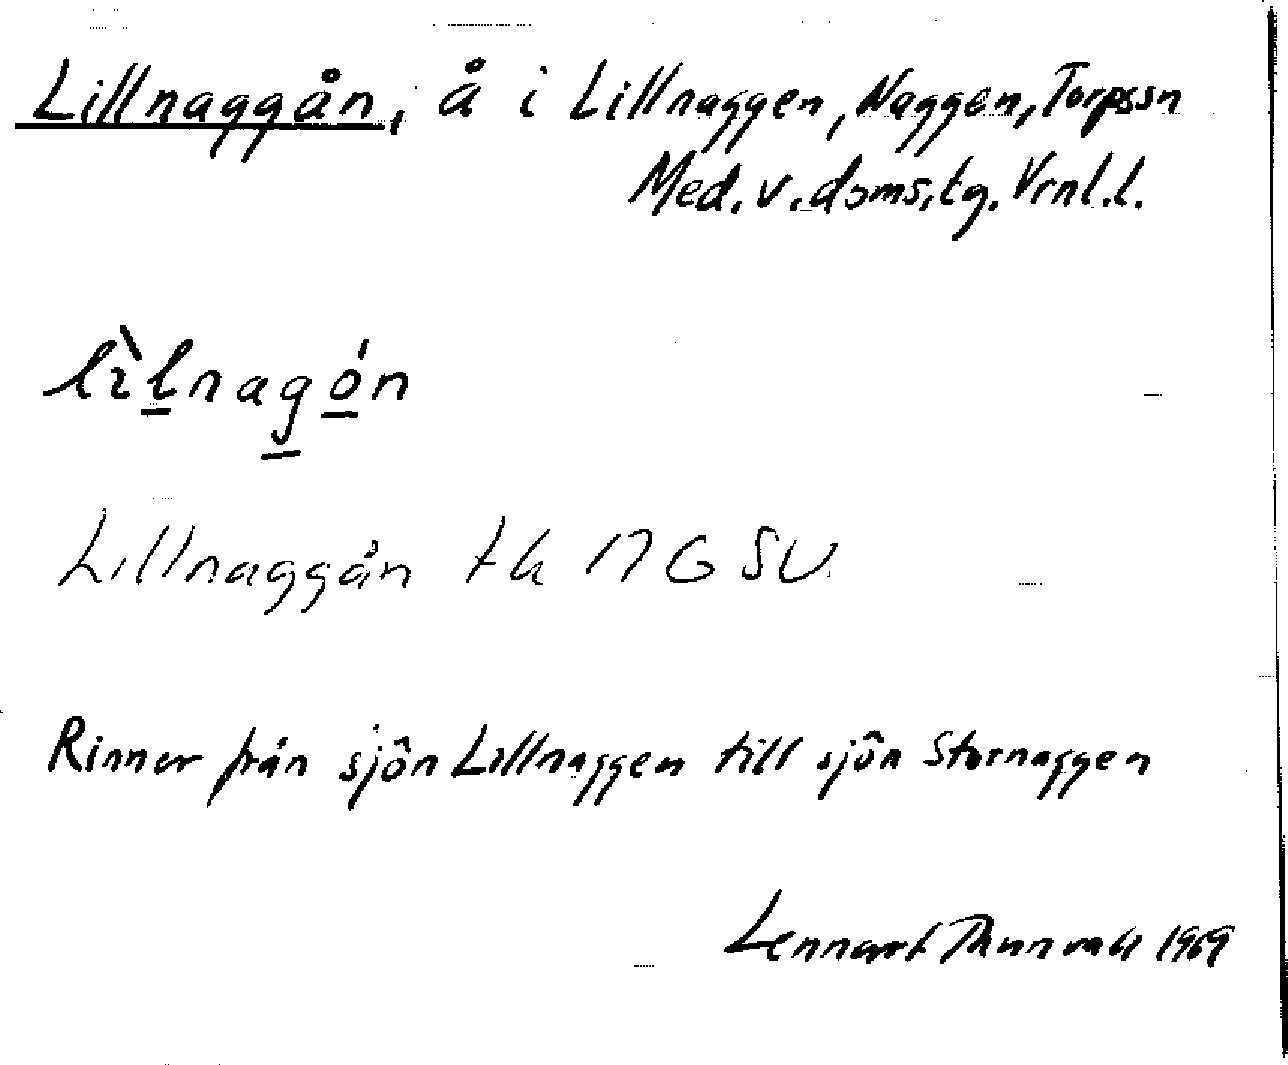 Lillnaggån, å i Lillnaggen, Naggen, Torpssn
Med. v. doms.tg. Vrnl.l.
lìlnagón
Lillnaggån tk 17G SV
Rinner från sjön Lillnaggen till sjön Stornaggen
Lennart Thunvall 1969